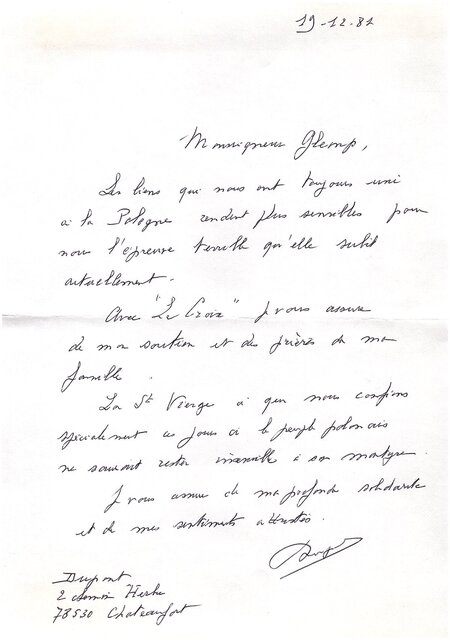 19-12-81
Monseigneur Glemp,
Les liens qui nous ont toujours uni
à la Pologne rendent plus sensibles pour
nous l'épreuve terrible qu'elle subit
actuellement.
Avec "La Croix" je vous assure
de mon soutien et des prières de ma
famille.
La St Vierge à qui nous confions
spécialement ces jours ci le peuple polonais
ne saurait rester insensible à son martyre.
Je vous assure de ma profonde solidarité
et de mes sentiments attristés.
Dupont
2 chemin
78530 Chateaufort